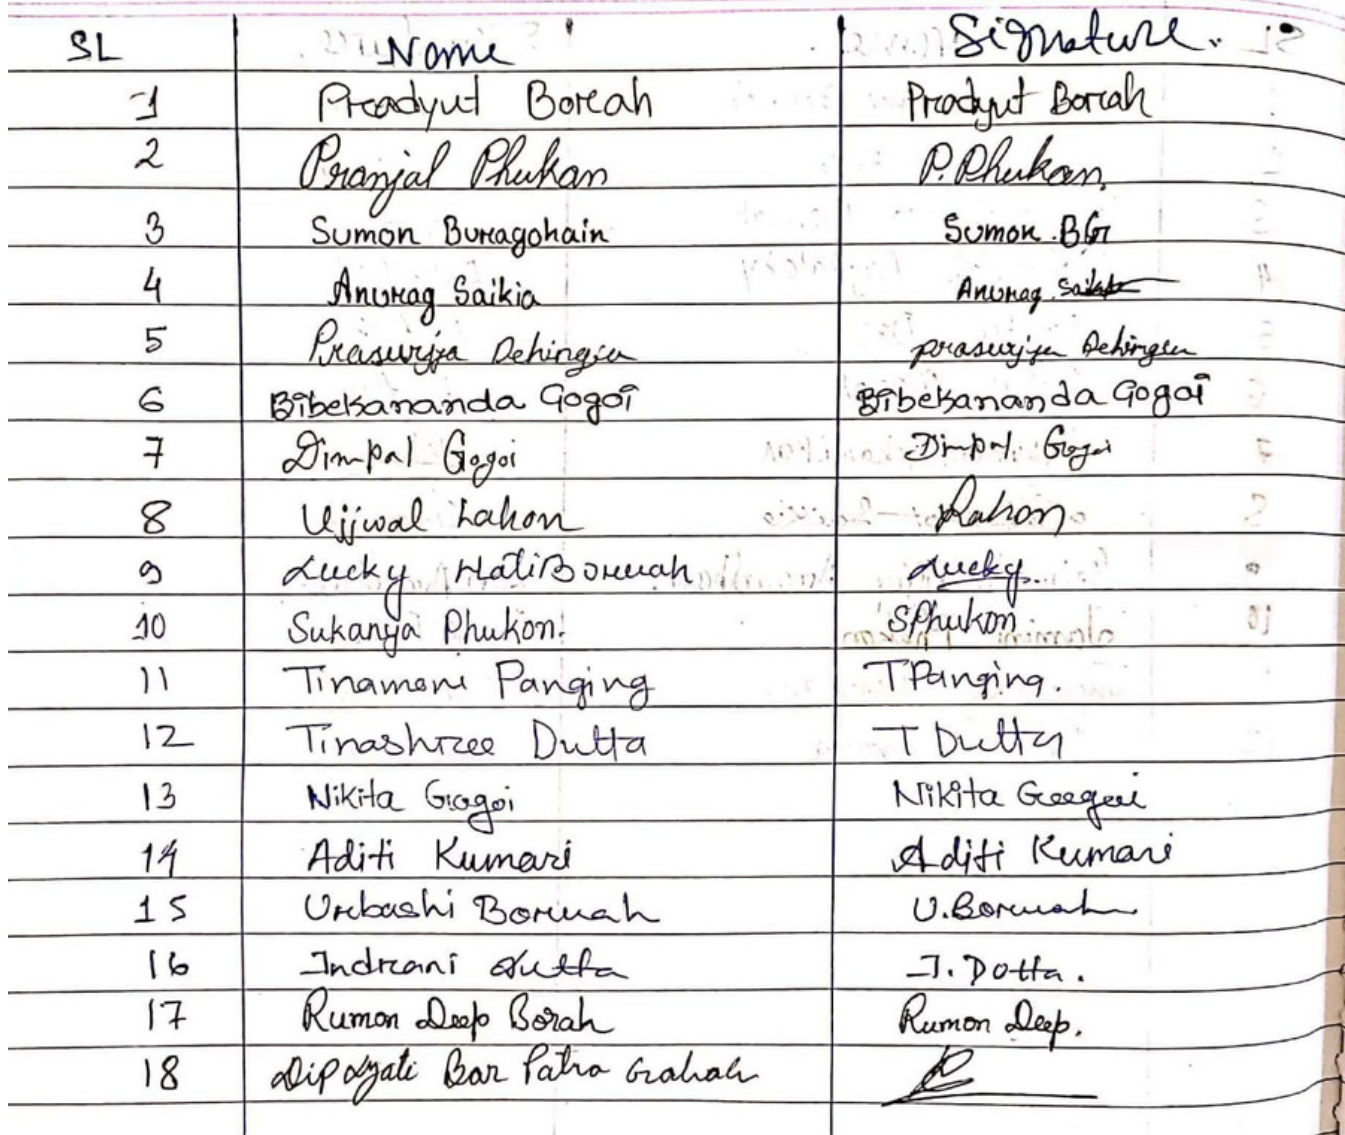 SL Name Signature.
1 Pradyut Borah Pradyut Borah
2 Pranjal Phukan P. Phukan,
3 Sumon Buragohain Sumon BG
4 Anurag Saikia Anurag Saikia
5 Prasurjya Dehingia prasurjya Dehingia
6 Bibekananda Gogoi Bibekananda Gogoi
7 Dimpal Gogoi Dimpal Gogoi
8 Ujjwal Lahon Lahon
9 Lucky HatiBoruah Lucky.
10 Sukanya Phukon. SPhukon
11 Tinamoni Panging TPanging.
12 Tinashree Dutta T Dutta
13 Nikita Gogoi Nikita Gogoi
14 Aditi Kumari Aditi Kumari
15 Urbashi Boruah U.Boruah
16 Indrani Dutta I. Dutta.
17 Rumon Deep Borah Rumon Deep.
18 Dip Jyoti Bar Patra Gohain